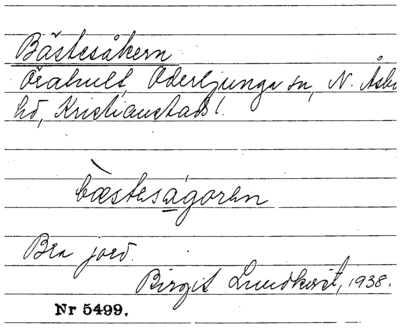 Bästesåkern
Örahult, Oderljunga sn, N. Åsbo
hd, Kristianstads l.
bæstesågoren
Bra jord.
Birgit Lundkvist, 1938.
Nr 5499.